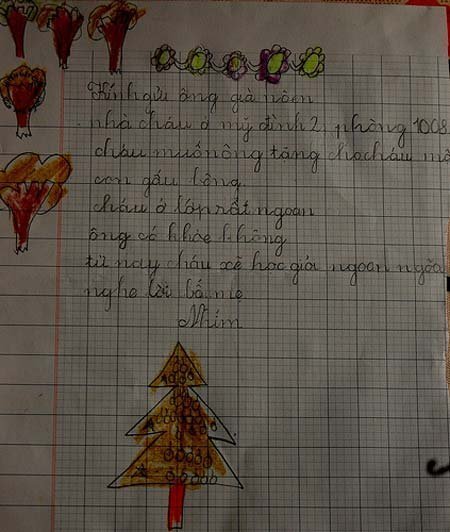 Kính gửi ông già nôen
nhà cháu ở mỹ đình 2, phòng 1008
cháu muốn ông tặng cho cháu mô
con gấu bông.
cháu ở lớp rất ngoan
ông có khỏe không
từ nay cháu xẽ học giỏi ngoan ngoã
nghe lời bố mẹ
Nhím